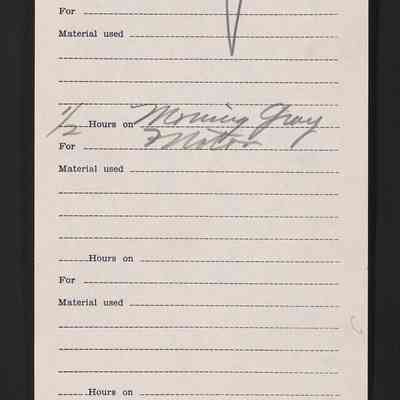 For
Material used
1/2 Hours on Moving Gray
For Motor
Material used
Hours on
For
Material used
Hours on